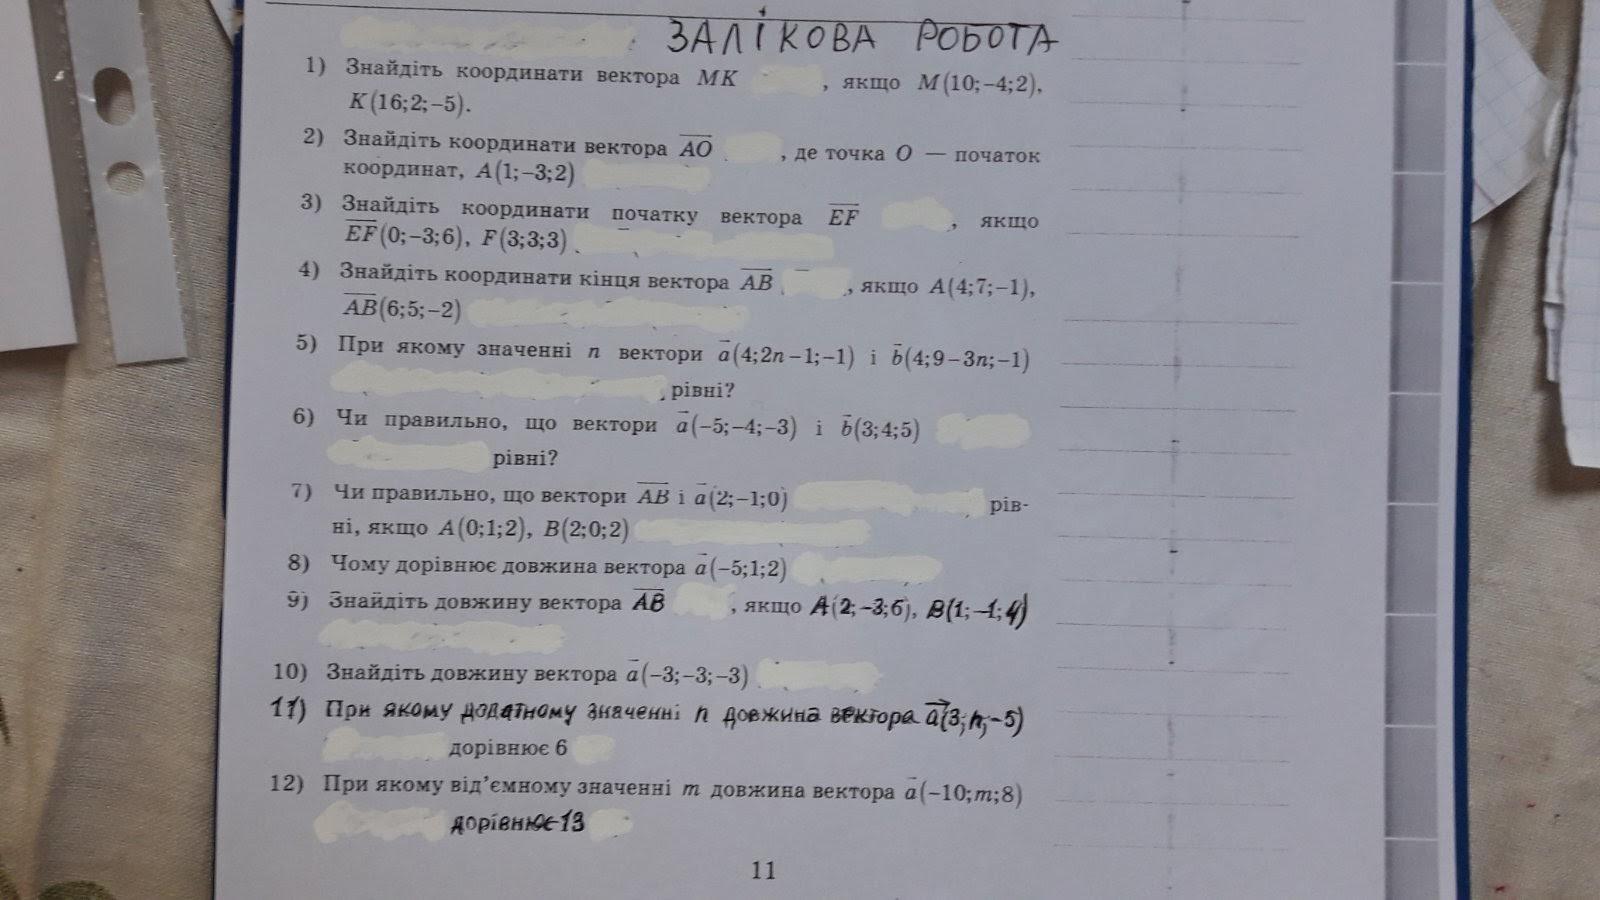 ЗАЛІКОВА РОБОТА
1) Знайдіть координати вектора MK , якщо M(10;−4;2),
K(16;2;−5).
2) Знайдіть координати вектора AO , де точка O — початок
координат, A(1;−3;2)
3) Знайдіть координати початку вектора EF , якщо
EF(0;−3;6), F(3;3;3)
4) Знайдіть координати кінця вектора AB , якщо A(4;7;−1),
AB(6;5;−2)
5) При якому значенні n вектори a(4;2n−1;−1) і b(4;9−3n;−1)
рівні?
6) Чи правильно, що вектори a(−5;−4;−3) і b(3;4;5)
рівні?
7) Чи правильно, що вектори AB і a(2;−1;0) рів-
ні, якщо A(0;1;2), B(2;0;2)
8) Чому дорівнює довжина вектора a(−5;1;2)
9) Знайдіть довжину вектора AB , якщо A(2;−3;6), B(1;−1;4)
10) Знайдіть довжину вектора a(−3;−3;−3)
11) При якому додатному значенні n довжина вектора a(3;n;−5)
дорівнює 6
12) При якому від’ємному значенні m довжина вектора a(−10;m;8)
дорівнює 13
11